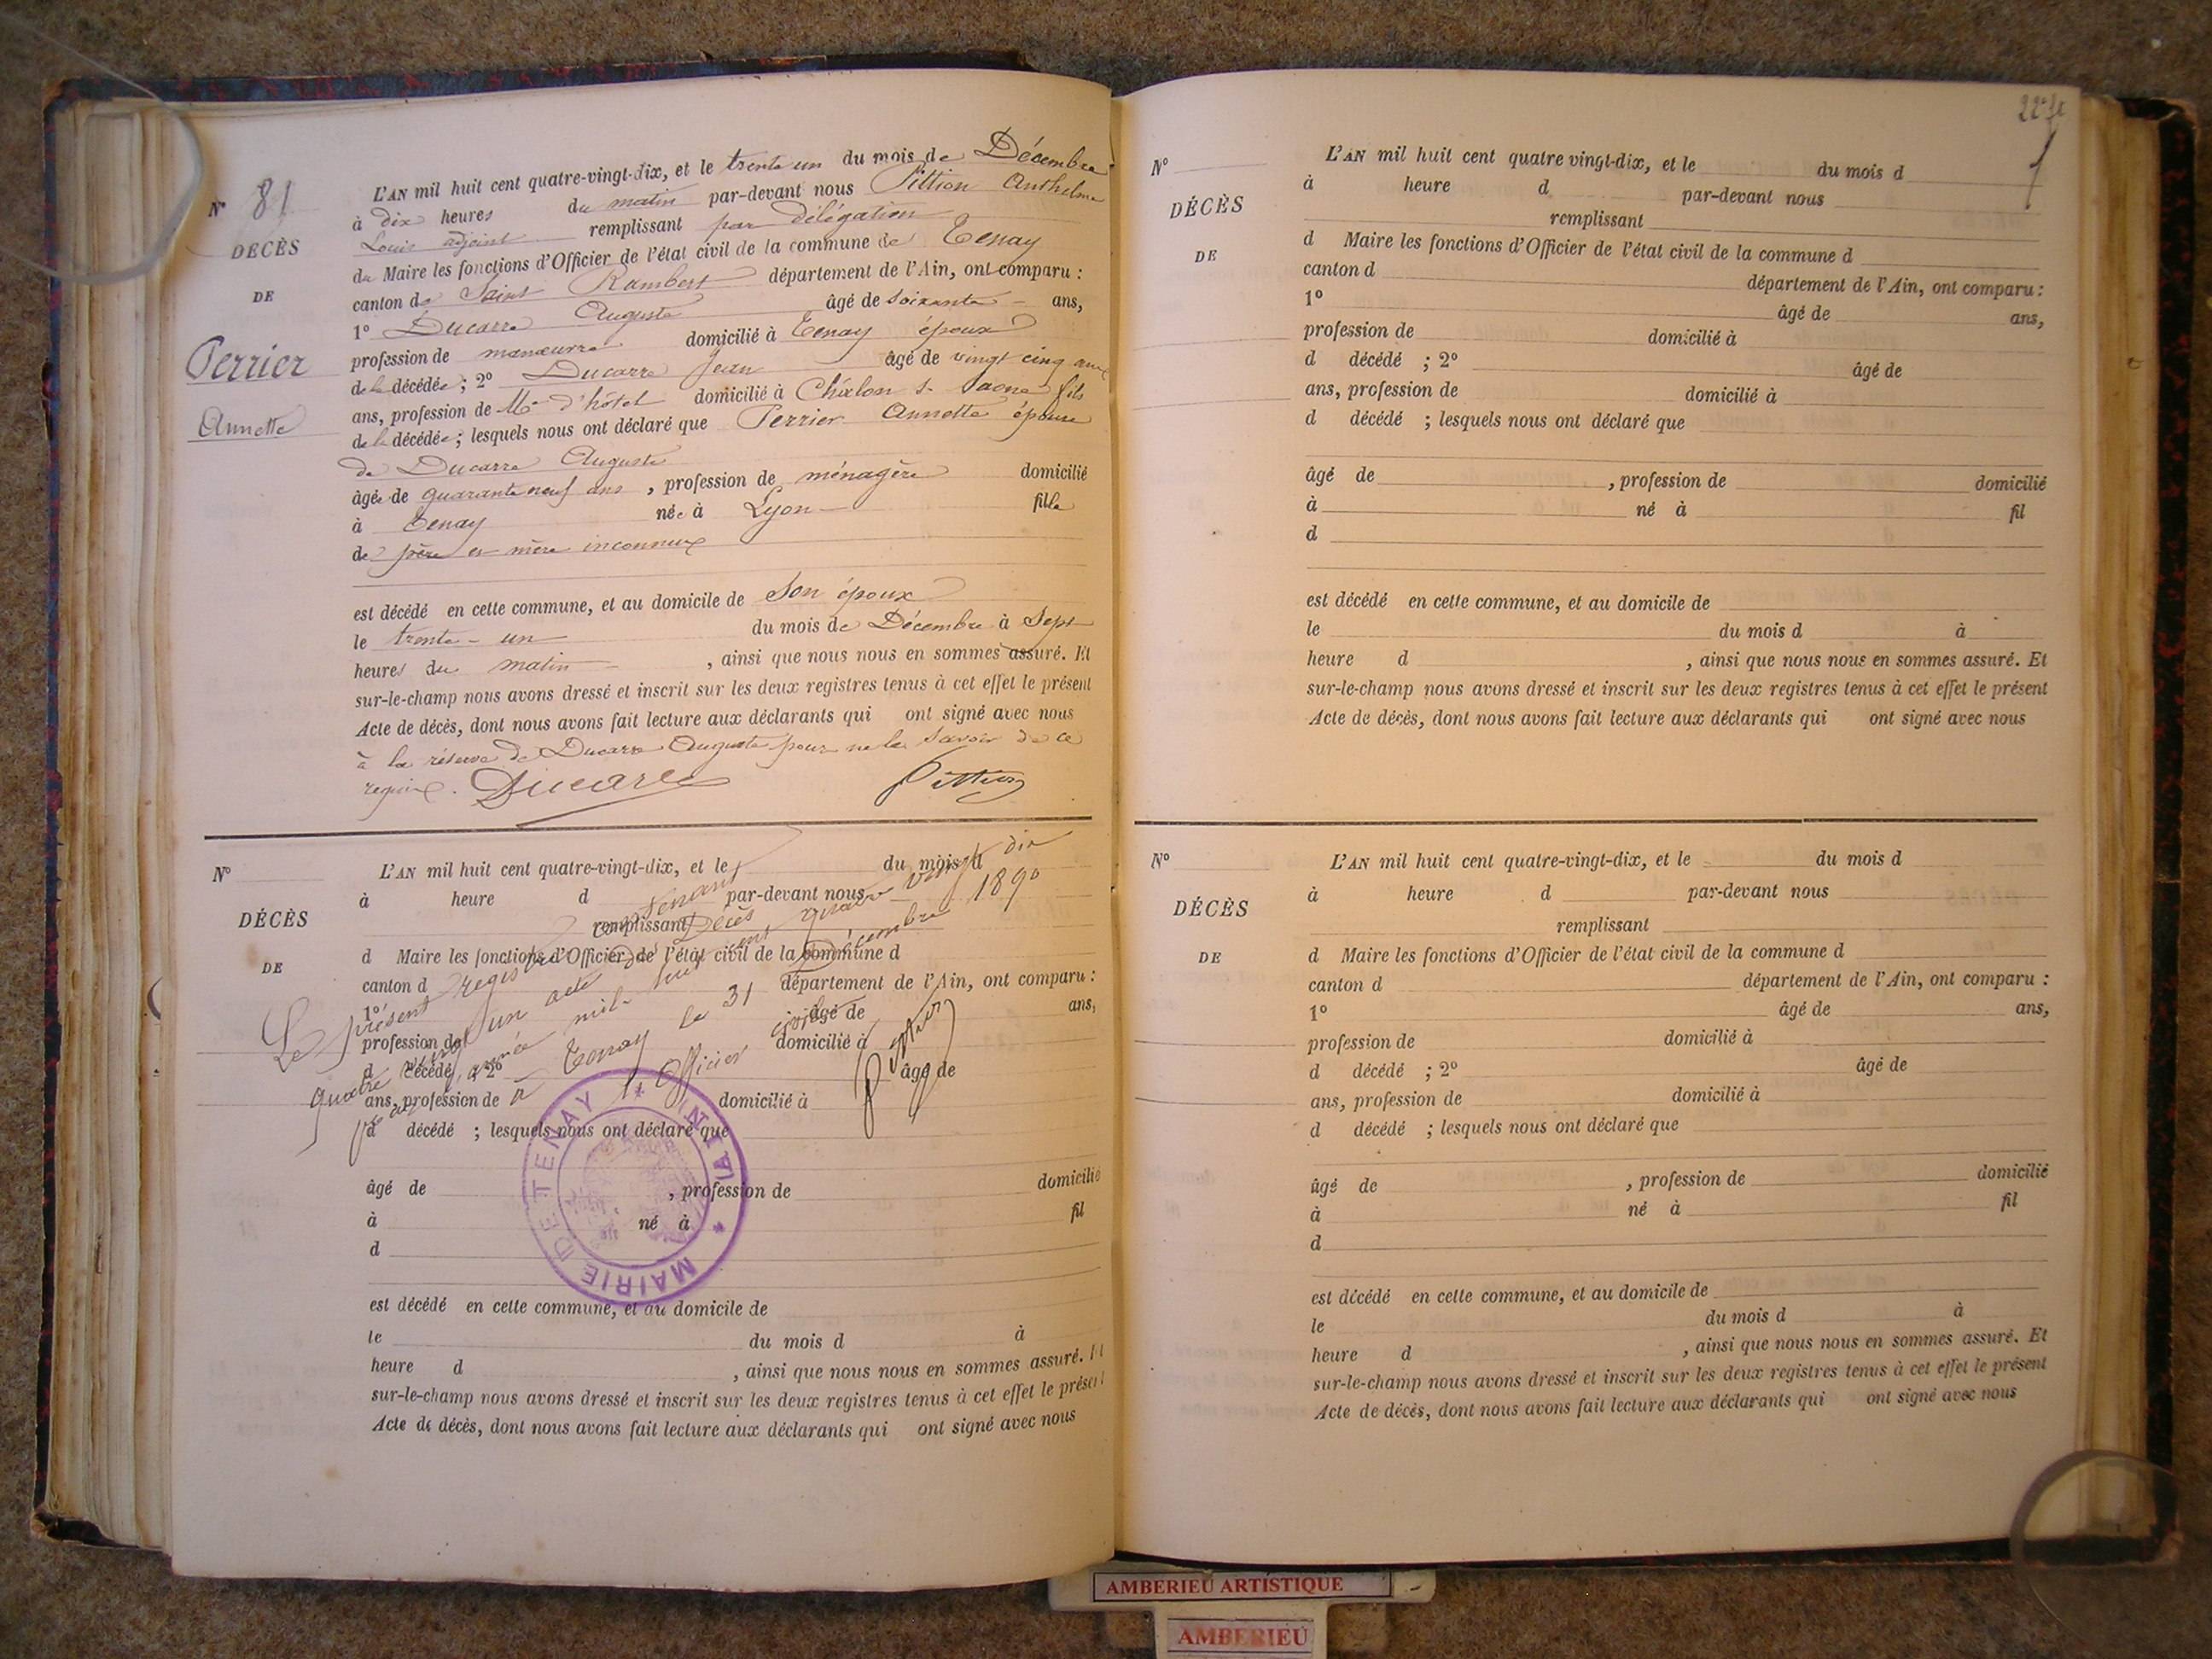 N° 81
DÉCÈS
DE
Perrier
Annette
L'AN mil huit cent quatre-vingt-dix, et le trente un du mois de Décembre
à dix heures du matin par-devant nous Pittion Anthelme
Louis adjoint remplissant par délégation
du Maire les fonctions d'Officier de l'état civil de la commune de Tenay
canton de Saint Rambert département de l'Ain, ont comparu :
1° Ducarre Auguste âgé de soixante ans,
profession de manœuvre domicilié à Tenay époux
de la décédée ; 2° Ducarre Jean âgé de vingt cinq ans
ans, profession de Me d'hôtel domicilié à Châlon s. Saone fils
de la décédée ; lesquels nous ont déclaré que Perrier Annette épouse
de Ducarre Auguste
âgée de quarante neuf ans , profession de ménagère domicilié
à Tenay née à Lyon fille
de père et mère inconnus
est décédé en cette commune, et au domicile de son époux
le trente-un du mois de Décembre à Sept
heures du matin , ainsi que nous nous en sommes assuré. Et
sur-le-champ nous avons dressé et inscrit sur les deux registres tenus à cet effet le présent
Acte de décès, dont nous avons fait lecture aux déclarants qui ont signé avec nous
à la réserve de Ducarre Auguste pour ne le savoir de ce
requis. Ducarre Pittion
N°
DÉCÈS
DE
L'AN mil huit cent quatre-vingt-dix, et le du mois d
à heure d par-devant nous
remplissant
d Maire les fonctions d'Officier de l'état civil de la commune d
canton d département de l'Ain, ont comparu :
1° âgé de ans,
profession de domicilié à
d décédé ; 2° âgé de
ans, profession de domicilié à
d décédé ; lesquels nous ont déclaré que
âgé de , profession de domicilié
à né à fil
d
est décédé en cette commune, et au domicile de
le du mois d à
heure d , ainsi que nous nous en sommes assuré. Et
sur-le-champ nous avons dressé et inscrit sur les deux registres tenus à cet effet le présent
Acte de décès, dont nous avons fait lecture aux déclarants qui ont signé avec nous
Le présent registre contenant
quatre vingt un acte de Décès
pour l'année mil huit cent quatre vingt dix
à Tenay le 31 Décembre 1890
L'officier civil Pittion
MAIRIE DE TENAY * (AIN) *
N°
DÉCÈS
DE
L'AN mil huit cent quatre vingt-dix, et le du mois d
à heure d par-devant nous
remplissant
d Maire les fonctions d'Officier de l'état civil de la commune d
canton d département de l'Ain, ont comparu :
1° âgé de ans,
profession de domicilié à
d décédé ; 2° âgé de
ans, profession de domicilié à
d décédé ; lesquels nous ont déclaré que
âgé de , profession de domicilié
à né à fil
d
est décédé en cette commune, et au domicile de
le du mois d à
heure d , ainsi que nous nous en sommes assuré. Et
sur-le-champ nous avons dressé et inscrit sur les deux registres tenus à cet effet le présent
Acte de décès, dont nous avons fait lecture aux déclarants qui ont signé avec nous
N°
DÉCÈS
DE
L'AN mil huit cent quatre-vingt-dix, et le du mois d
à heure d par-devant nous
remplissant
d Maire les fonctions d'Officier de l'état civil de la commune d
canton d département de l'Ain, ont comparu :
1° âgé de ans,
profession de domicilié à
d décédé ; 2° âgé de
ans, profession de domicilié à
d décédé ; lesquels nous ont déclaré que
âgé de , profession de domicilié
à né à fil
d
est décédé en cette commune, et au domicile de
le du mois d à
heure d , ainsi que nous nous en sommes assuré. Et
sur-le-champ nous avons dressé et inscrit sur les deux registres tenus à cet effet le présent
Acte de décès, dont nous avons fait lecture aux déclarants qui ont signé avec nous
AMBERIEU ARTISTIQUE
AMBERIEU